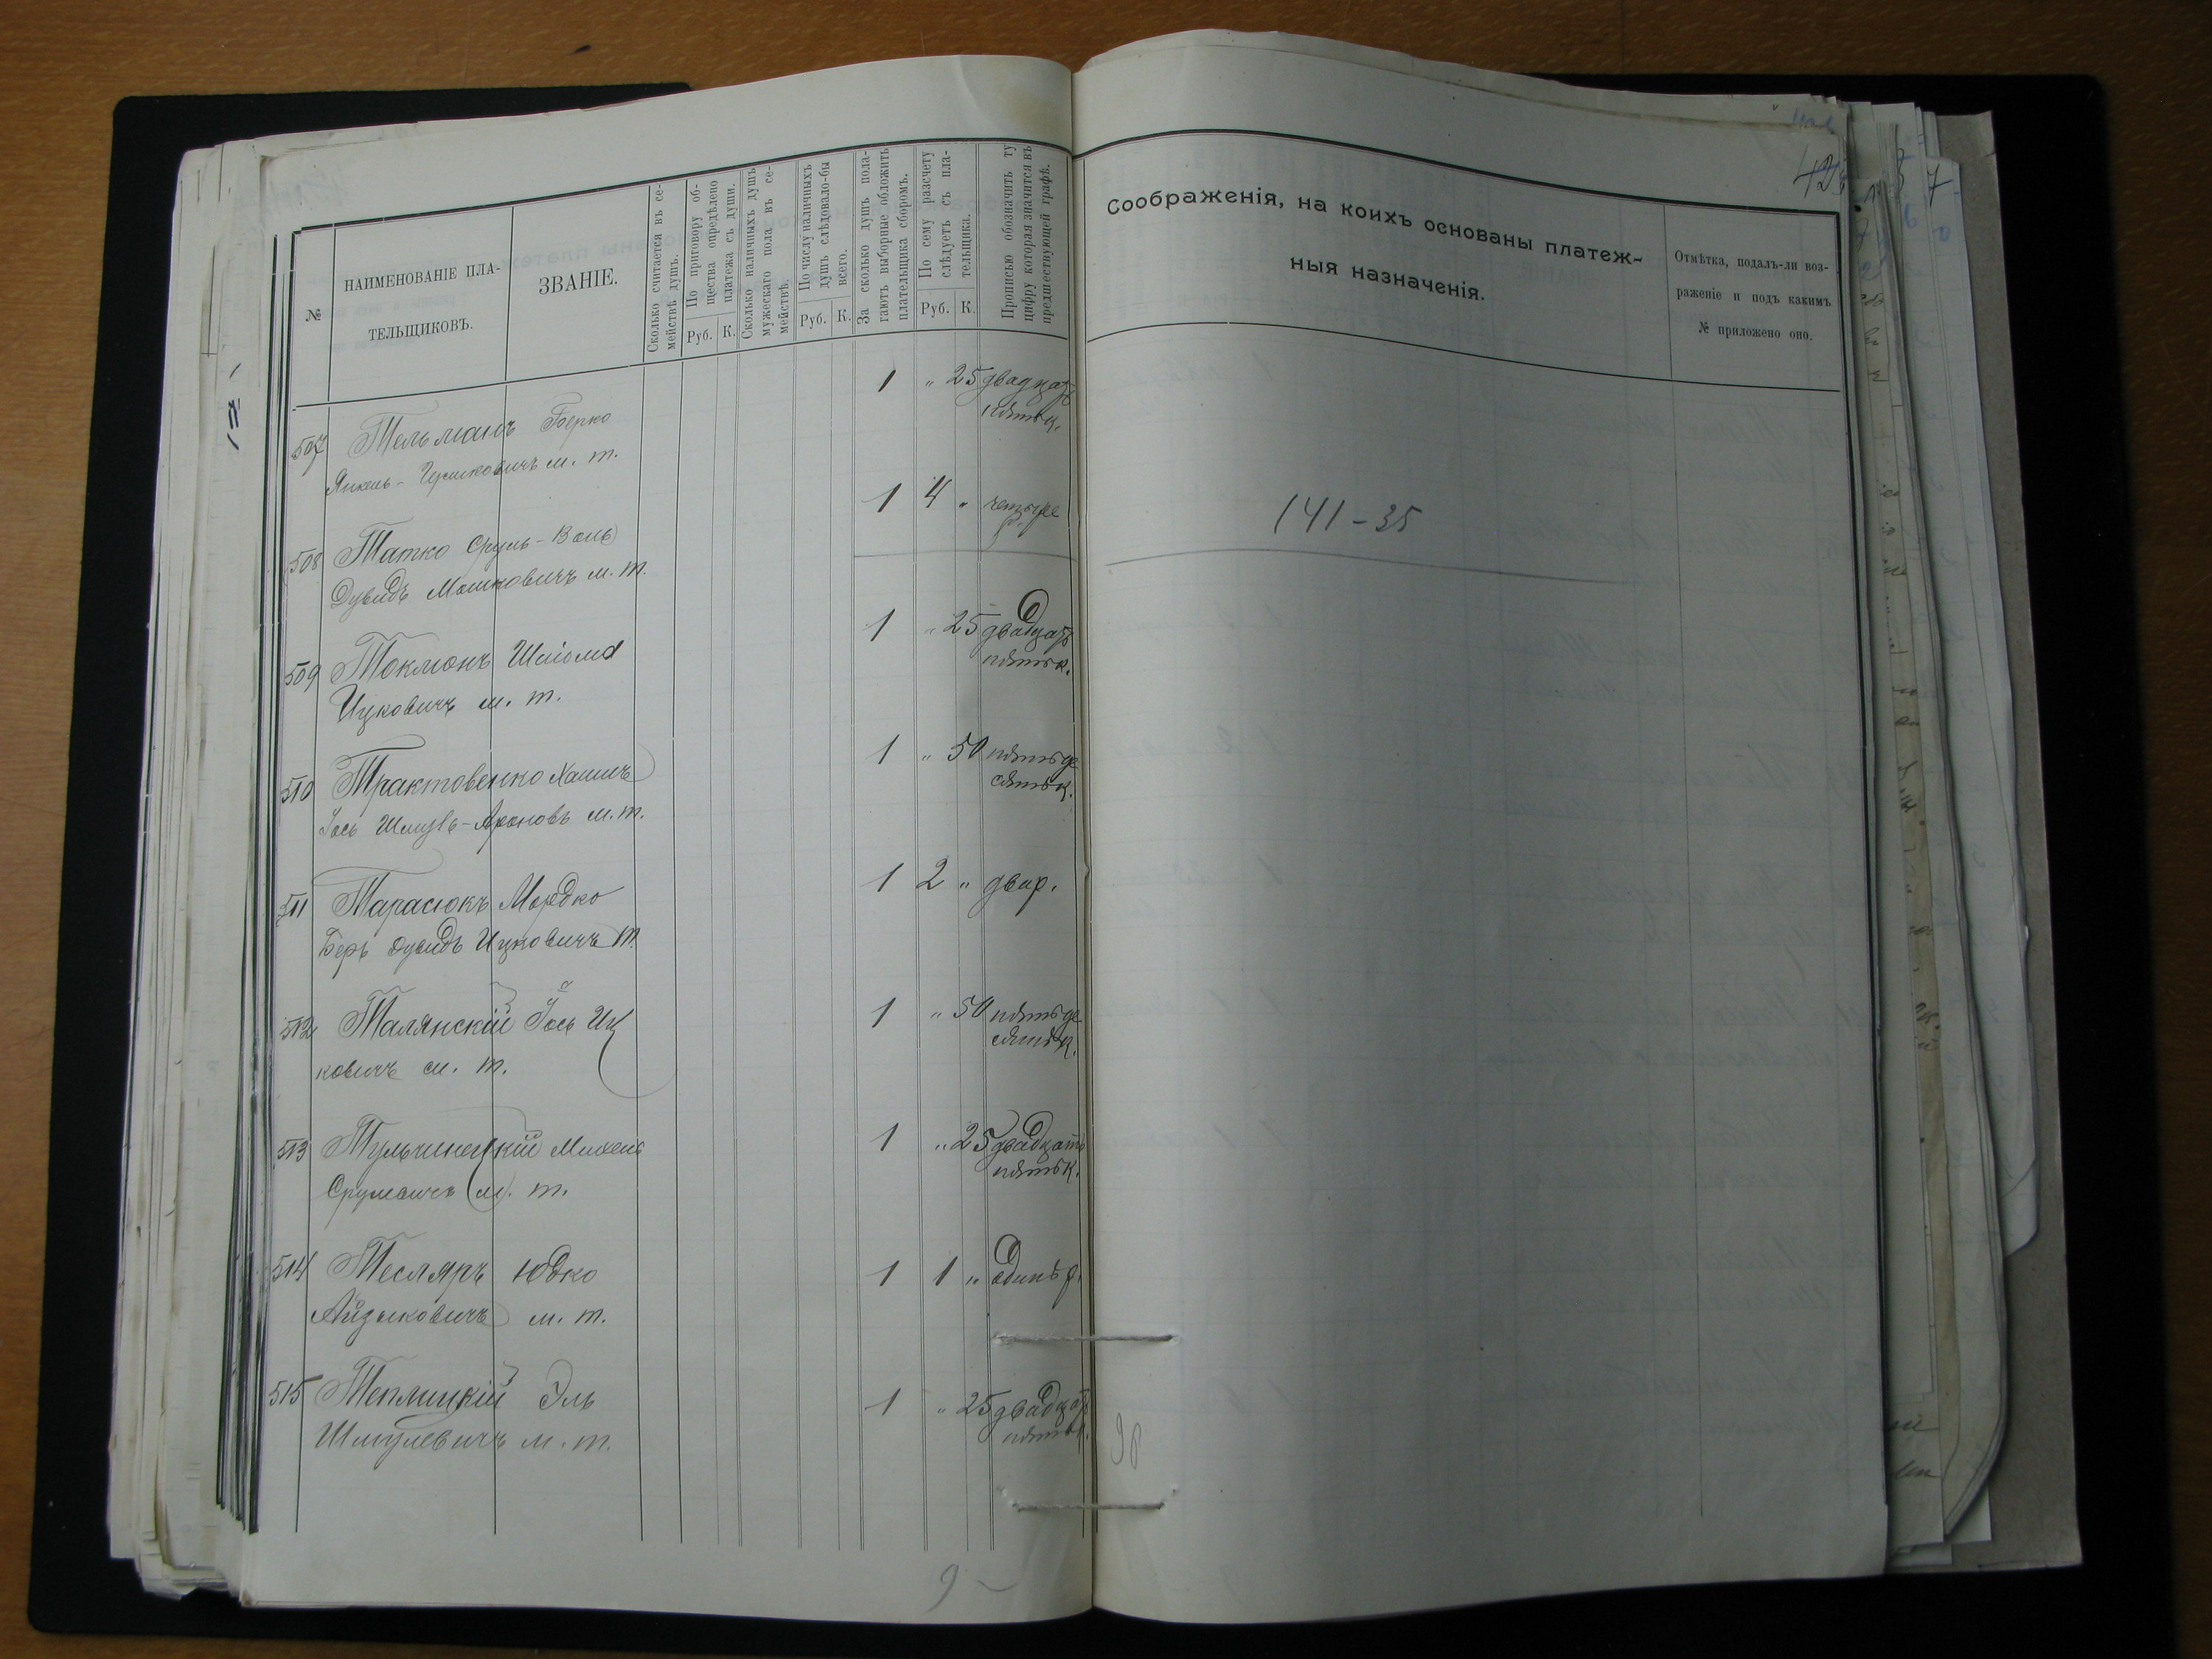 №
НАИМЕНОВАНІЕ ПЛА-
ТЕЛЬЩИКОВЪ.
ЗВАНІЕ.
Сколько считается въ се-
мействѣ душъ.
По приговору об-
щества опредѣлено
платежа съ души.
Руб. К.
Сколько наличныхъ душъ
мужескаго пола въ се-
мействѣ.
По числу наличныхъ
душъ слѣдовало-бы
всего.
Руб. К.
За сколько душъ пола-
гаютъ выборные обложить
плательщика сборомъ.
По сему разсчету
слѣдуетъ съ пла-
тельщика.
Руб. К.
Прописью обозначить ту
цифру которая значится въ
предшествующей графѣ.
Соображенія, на коихъ основаны платеж-
ныя назначенія.
Отмѣтка, подалъ-ли воз-
раженіе и подъ какимъ
№ приложено оно.
507 Тельманъ Берко 1 " 25 двадцать
Янкель- м. т. пять к.
508 Татко Сруль- 1 4 " четыре
Дувидъ Мошковичъ м. т. р.
141-35
509 Токмонъ Шліома 1 " 25 двадцать
Ицковичъ м. т. пять к.
510 Трактовенко Хаимъ 1 " 50 пятьде
Іось Шмуль-Ароновъ м. т. сять к.
511 Тарасюкъ Мордко 1 2 " два р.
Беръ Дувидъ Ицковичъ т.
512 Талянскій Іось Иц 1 " 50 пятьде
ковичъ м. т. сять к.
513 Тульчинецкій Михель 1 " 25 двадцать
Срулевичъ м. т. пять к.
514 Тесляръ Юдко 1 1 " одинъ р.
Айзиковичъ м. т.
515 Теплицкій Эль 1 " 25 двадцать
Шмулевичъ м. т. пять к.
9 -